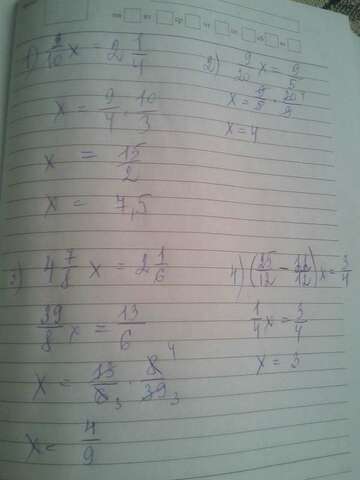 1) 3/10 x = 2 1/4
x = 9/4 · 10/3
x = 15/2
x = 7,5
2) 9/20 x = 9/5
x = 9/5 · 20/9
x = 4
3) 4 7/8 x = 2 1/6
39/8 x = 13/6
x = 13/6 3 · 8/39 4 3
x = 4/9
4) ( / 12 - / 12) x = 3/4
1/4 x = 3/4
x = 3